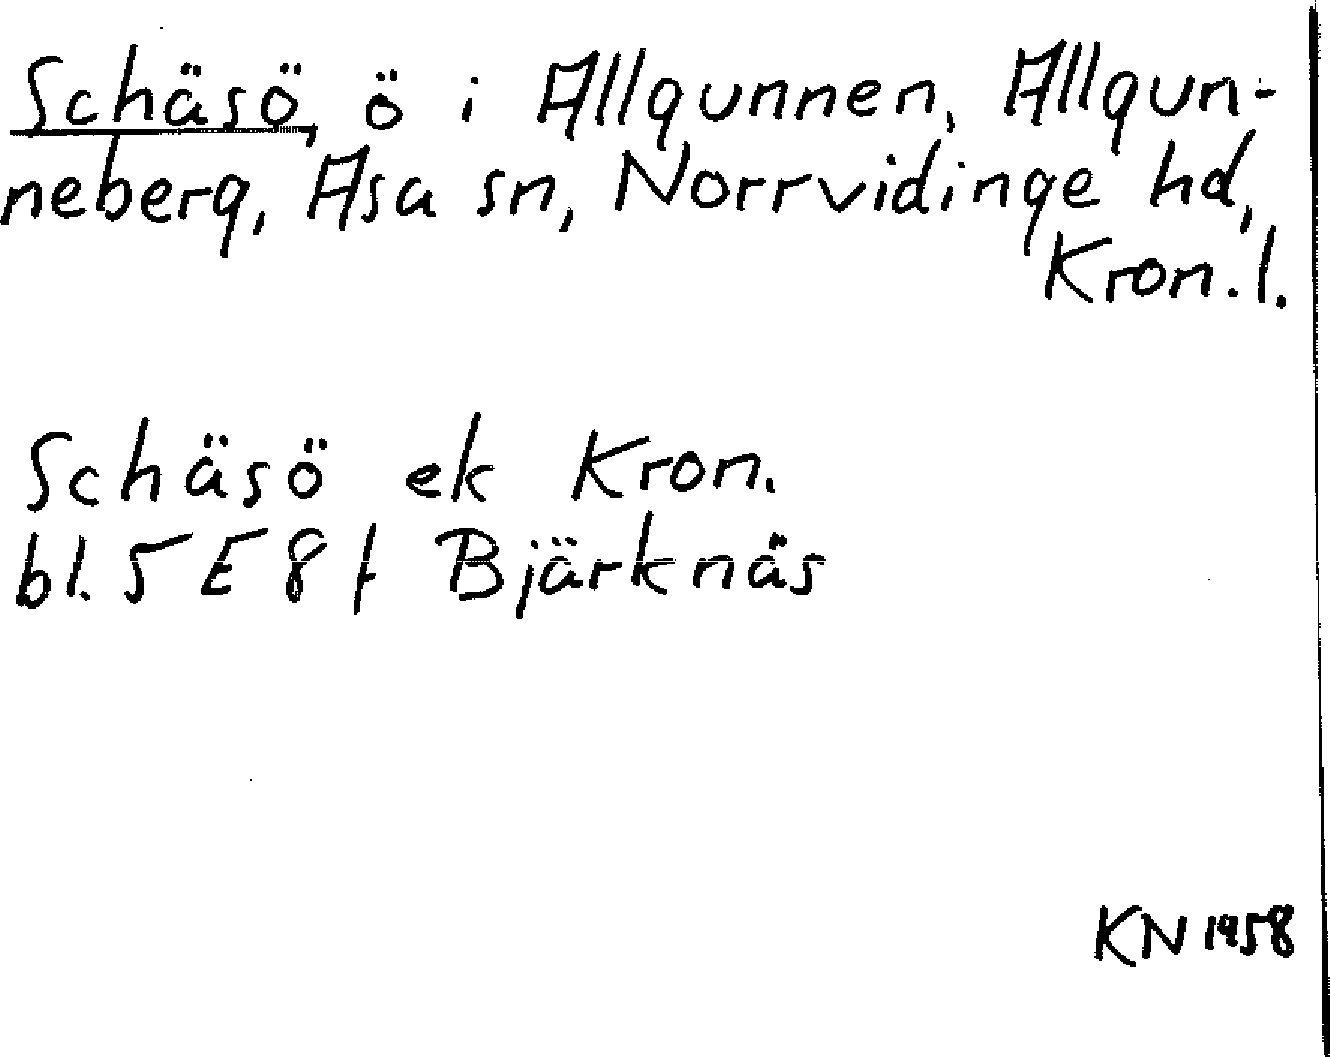 Schäsö, ö i Allgunnen, Allgun-
neberg, Asa sn, Norrvidinge hd,
Kron.l.
Schäsö ek Kron.
bl. 5 E 8 f Bjärknäs
KN 1958